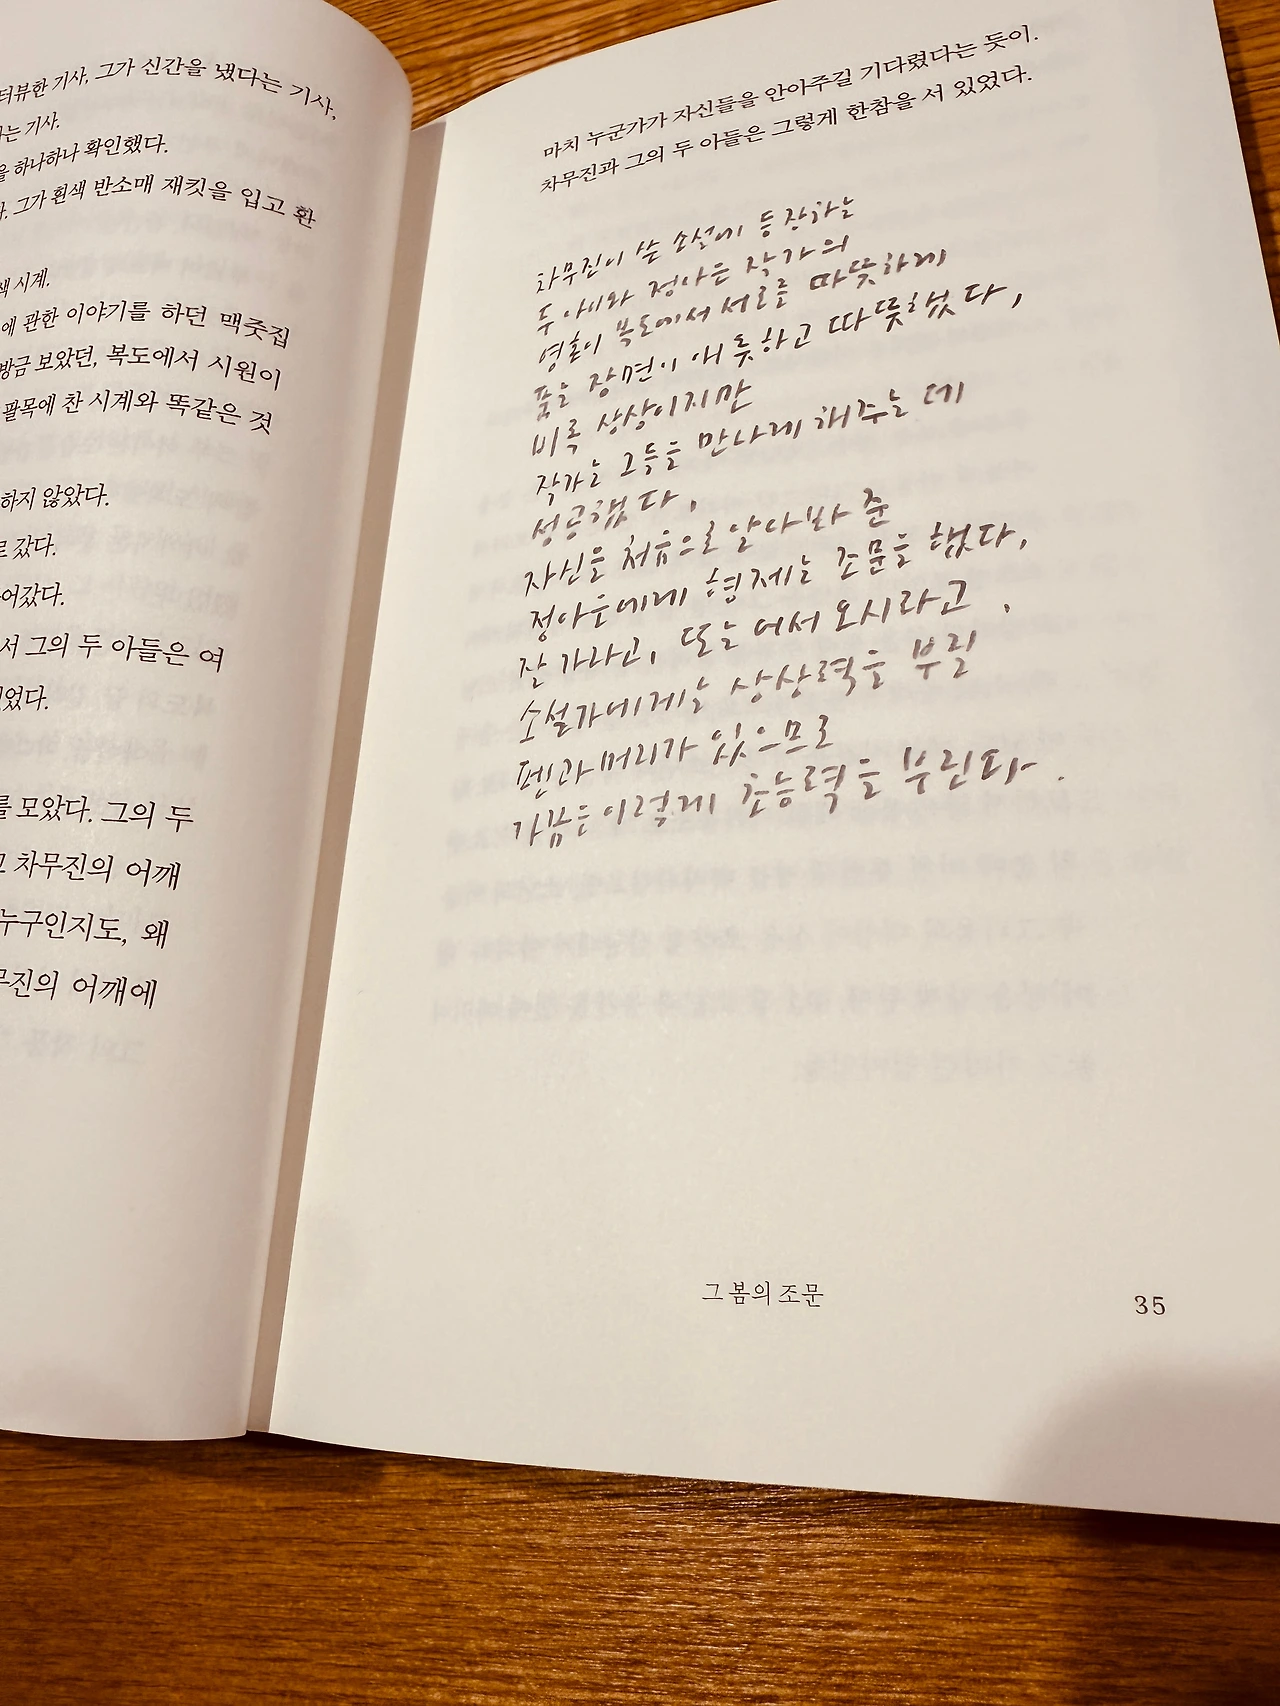 터뷰한 기사, 그가 신간을 냈다는 기사,
는 기사.
을 하나하나 확인했다.
그가 흰색 반소매 재킷을 입고 환
색 시계.
에 관한 이야기를 하던 맥줏집
방금 보았던, 복도에서 시원이
팔목에 찬 시계와 똑같은 것
하지 않았다.
갔다.
어갔다.
서 그의 두 아들은 여
있었다.
를 모았다. 그의 두
차무진의 어깨
누구인지도, 왜
무진의 어깨에
마치 누군가가 자신들을 안아주길 기다렸다는 듯이.
차무진과 그의 두 아들은 그렇게 한참을 서 있었다.
차무진이 쓴 소설에 등장하는
두 아비와 정아은 작가의
영혼이 복도에서 서로를 따뜻하게
품을 장면이 애틋하고 따뜻했다,
비록 상상이지만
작가는 그들을 만나게 해주는 데
성공했다,
자신을 처음으로 알아봐 준
정아은에게 형제는 조문을 했다,
잘 가라고, 또는 어서 오시라고.
소설가에게는 상상력을 부릴
펜과 머리가 있으므로
가끔은 이렇게 초능력을 부린다.
그 봄의 조문
35